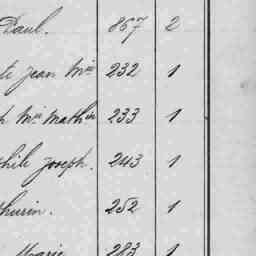 Paul. 867 2
te Jean Mie 232 1
h Mie Mathin 233 1
phile Joseph. 243 1
thurin. 252 1
Marie 283 1